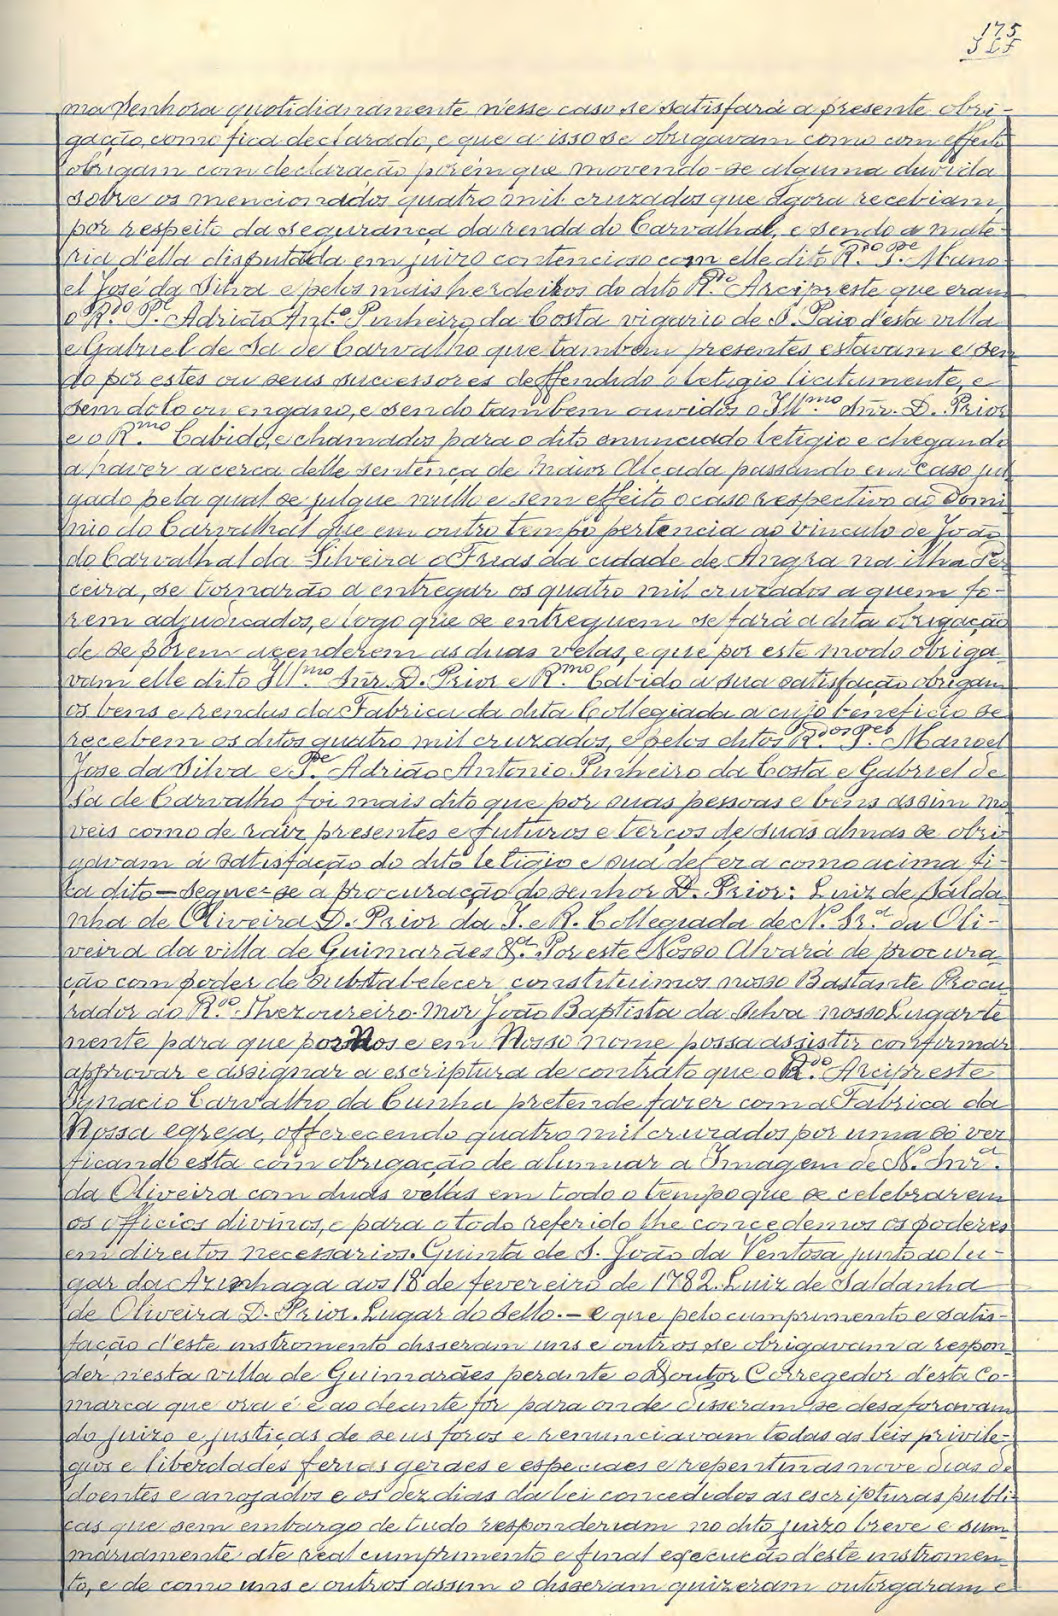 175
ma Senhora quotidianamente n'esse caso se satisfará a presente obri-
gação, como fica declarado, e que a isso se obrigavam como com effeito
obrigam com declaração porém que movendo-se alguma duvida
sobre os mencionados quatro mil cruzados que agora recebiam,
por respeito da segurança da renda do Carvalhal, e sendo a mate-
ria d'ella disputada em juizo contencioso com elle dito R.do P.e Mano-
el José da Silva e pelos mais herdeiros do dito R.do Arcipreste que eram
o R.do P.e Adrião Ant.o Pinheiro da Costa vigario de S. Paio d'esta villa
e Gabriel de Sa de Carvalho que tambem presentes estavam e sen
do por estes ou seus successores deffendido o letigio licitamente, e
sem dolo ou engano, e sendo tambem ouvidos o Ill.mo Snr. D. Prior
e o R.mo Cabido, e chamados para o dito enunciado letigio e chegando
a haver acerca delle sentença de maior Alçada passando em caso jul
gado pela qual se julgue nullo e sem effeito o caso respectivo ao Domi
nio do Carvalhal que em outro tempo pertencia ao vinculo de João
do Carvalhal da Silveira e Frias da cidade de Angra na ilha Ter
ceira, se tornarão a entregar os quatro mil cruzados a quem fo-
rem adjudicados, e logo que se entreguem se fará a dita obrigação
de se porem acenderem as duas velas, e que por este modo obriga-
vam elle dito Ill.mo Snr. D. Prior e R.mo Cabido a sua satisfação obrigam
os bens e rendas da Fabrica da dita Collegiada a cujo beneficio se
recebem os ditos quatro mil cruzados, e pelos ditos R.dos P.es Manoel
José da Silva e P.e Adrião Antonio Pinheiro da Costa e Gabriel de
Sa de Carvalho foi mais dito que por suas pessoas e bens assim mo
veis como de raiz presentes e futuros e terços de suas almas se obri-
gavam á satisfação do dito letigio e sua defeza como acima fi-
ca dito — segue-se a procuração do senhor D. Prior: Luiz de Salda
nha de Oliveira D. Prior da I. e R. Collegiada de N. Sr.a da Oli-
veira da villa de Guimarães &.a Por este Nosso Alvará de procura
ção com poder de substabelecer constituimos nosso Bastante Procu
rador ao R.do Thezoureiro-Mor João Baptista da Silva nosso Lugar te
nente para que por Nos e em Nosso nome possa assistir confirmar
approvar e assignar a escriptura de contrato que o R.do Arcipreste
Ignacio Carvalho da Cunha pretende fazer com a Fabrica da
Nossa egreja, offerecendo quatro mil cruzados por uma só vez
ficando esta com obrigação de alumiar a Imagem de N. Snr.a
da Oliveira com duas vellas em todo o tempo que se celebrarem
os officios divinos, e para o todo referido lhe concedemos os poderes
em direitos necessarios. Quinta de S. João da Ventosa junto ao lu-
gar da Azinhaga aos 18 de fevereiro de 1782. Luiz de Saldanha
de Oliveira D. Prior. Lugar do Sello. — e que pelo cumprimento e satis-
fação d'este instromento disseram uns e outros se obrigavam a respon-
der n'esta villa de Guimarães perante o Doutor Corregedor d'esta Co-
marca que ora é e ao deante for para onde disseram se desaforavam
do juizo e justiças de seus foros e renunciavam todas as leis privile-
gios e liberdades ferias geraes e especiaes e repentinas nove dias de
doentes e anojados e os dez dias da lei concedidos as escripturas publi-
cas que sem embargo de tudo responderiam no dito juizo breve e sum-
mariamente ate real cumprimento e final execução d'este instromen-
to, e de como uns e outros assim o disseram quizeram outorgaram e